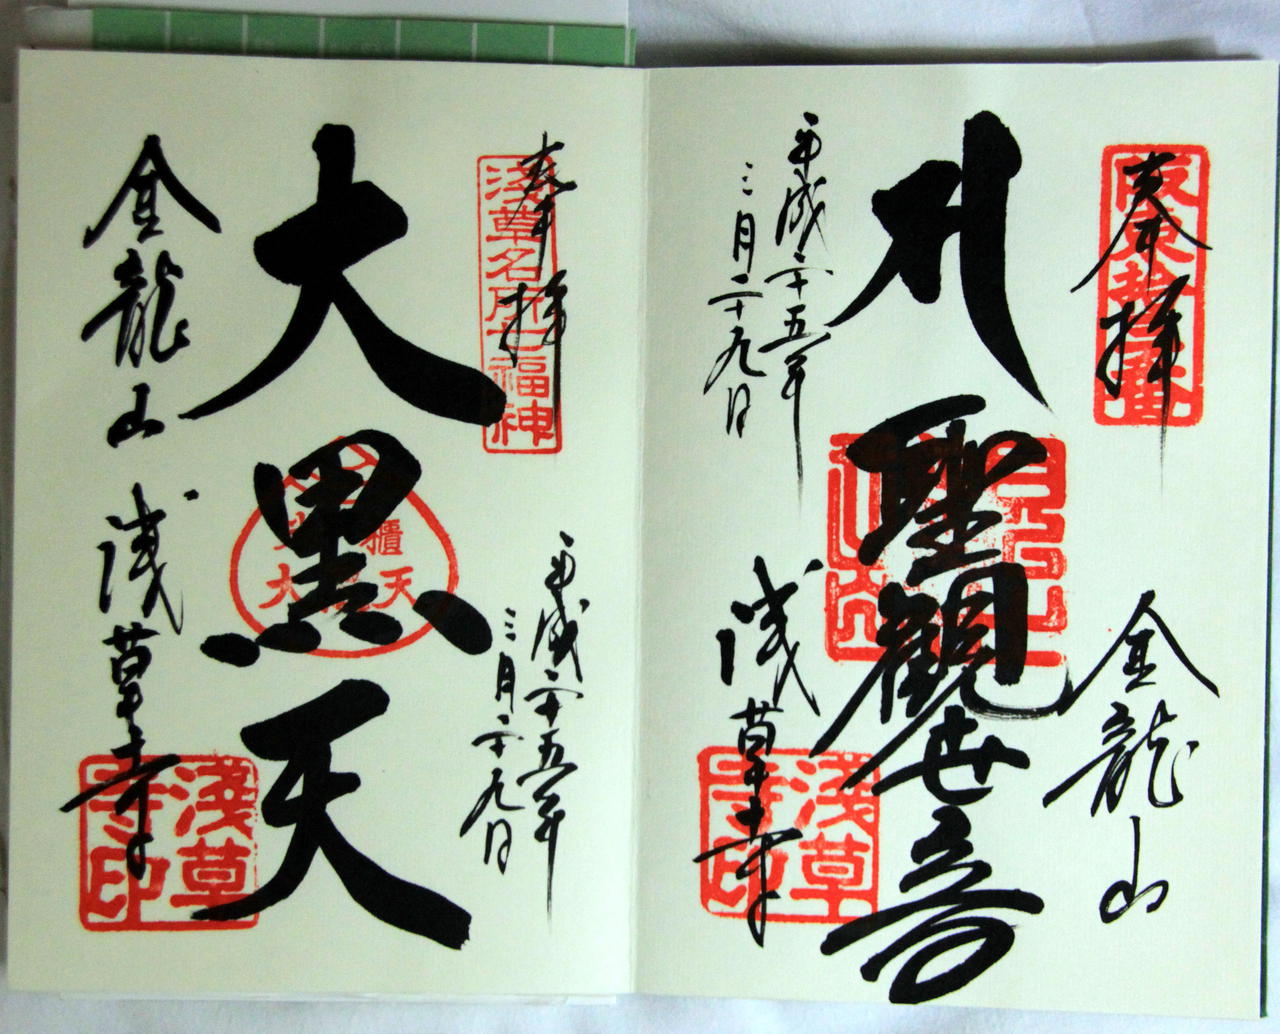 奉拝
金龍山
聖觀世音
平成二十五年
三月二十九日
浅草寺
淺草
寺印
奉拝
淺草名所七福神
平成二十五年
三月二十九日
大黒天
金龍山 浅草寺
淺草
寺印